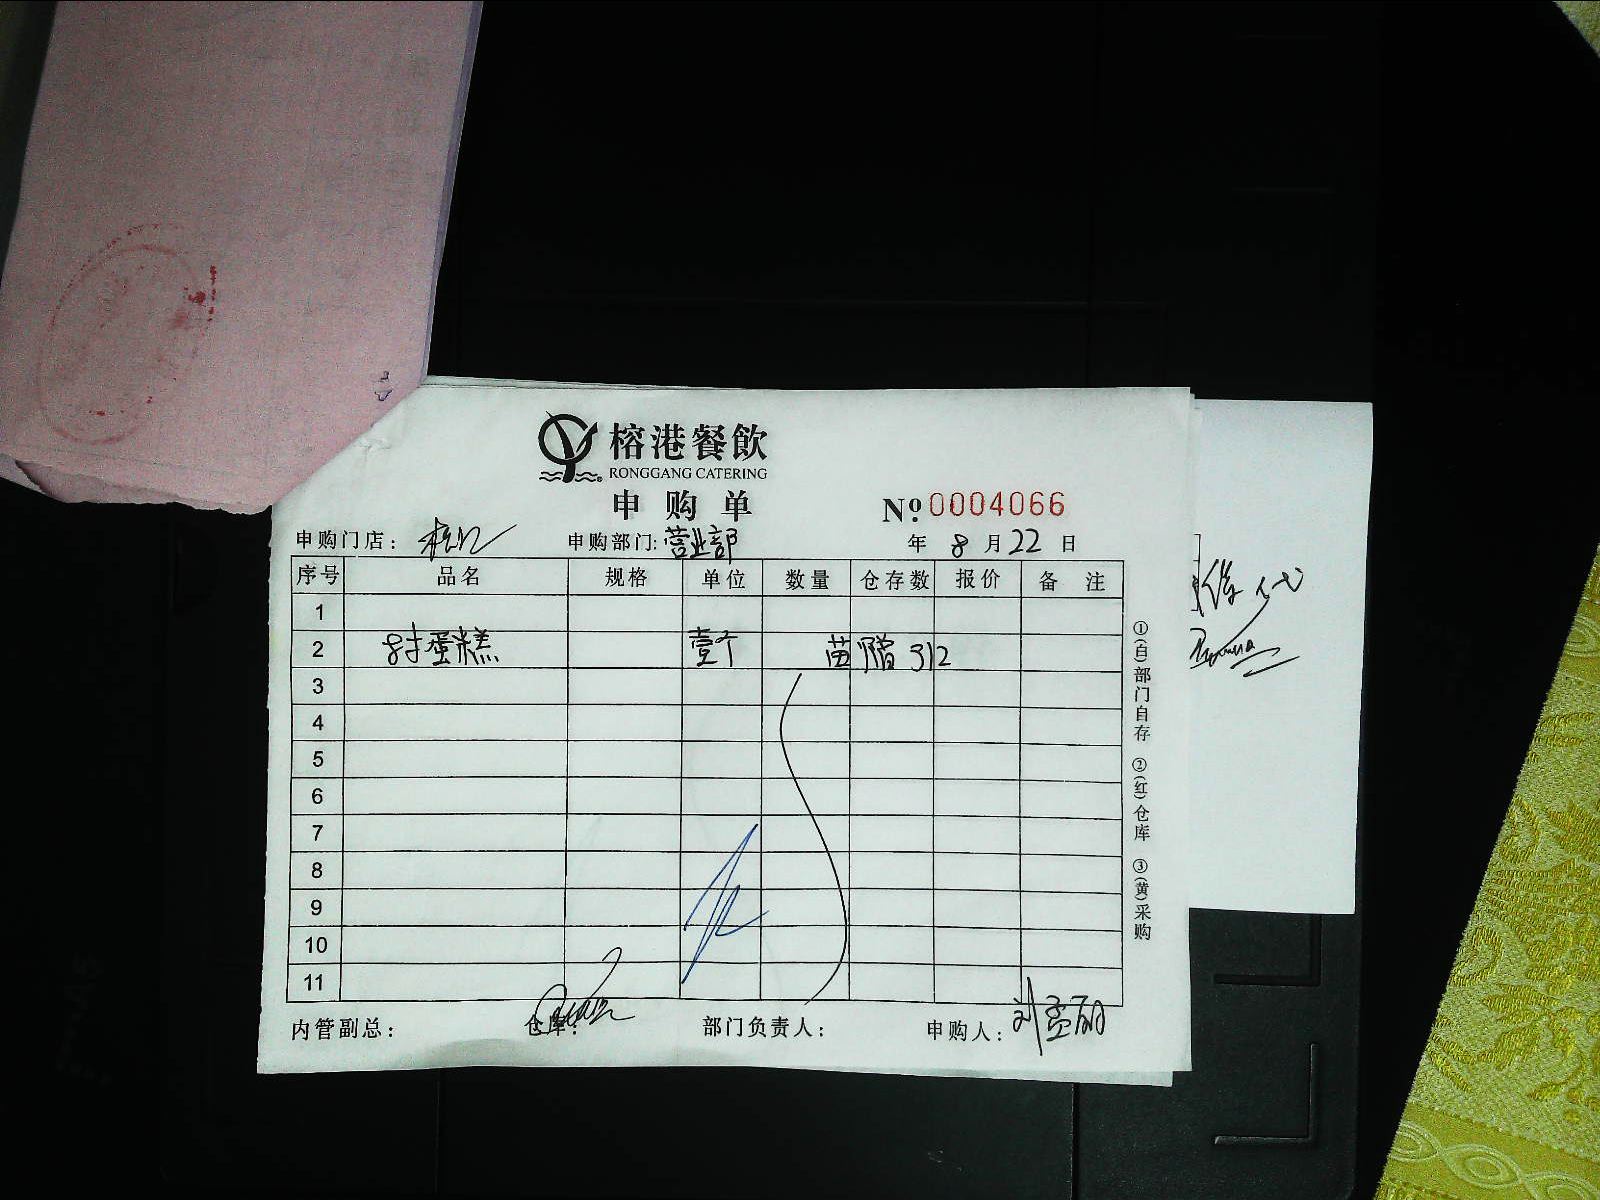 榕港餐飲
RONGGANG CATERING
申购单
№ 0004066
申购门店： 申购部门: 营业部 年 8 月 22 日
序号 品名 规格 单位 数量 仓存数 报价 备注
1
2 8寸蛋糕 壹个 苗 赠 312
3
4
5
6
7
8
9
10
11
内管副总： 仓库： 部门负责人： 申购人：刘孟丽
①(自)部门自存 ②(红)仓库 ③(黄)采购